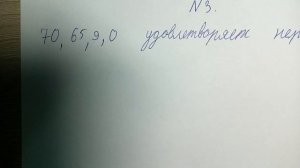 N3.
70, 65, 9, 0 удовлетворяет нер